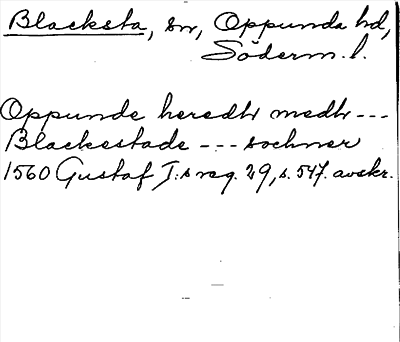 Blacksta, sn, Oppunda hd,
Söderm. l.
Oppunde heredh medh ---
Blackestade --- sochner
1560 Gustaf I:s reg. 29, s. 547. avskr.